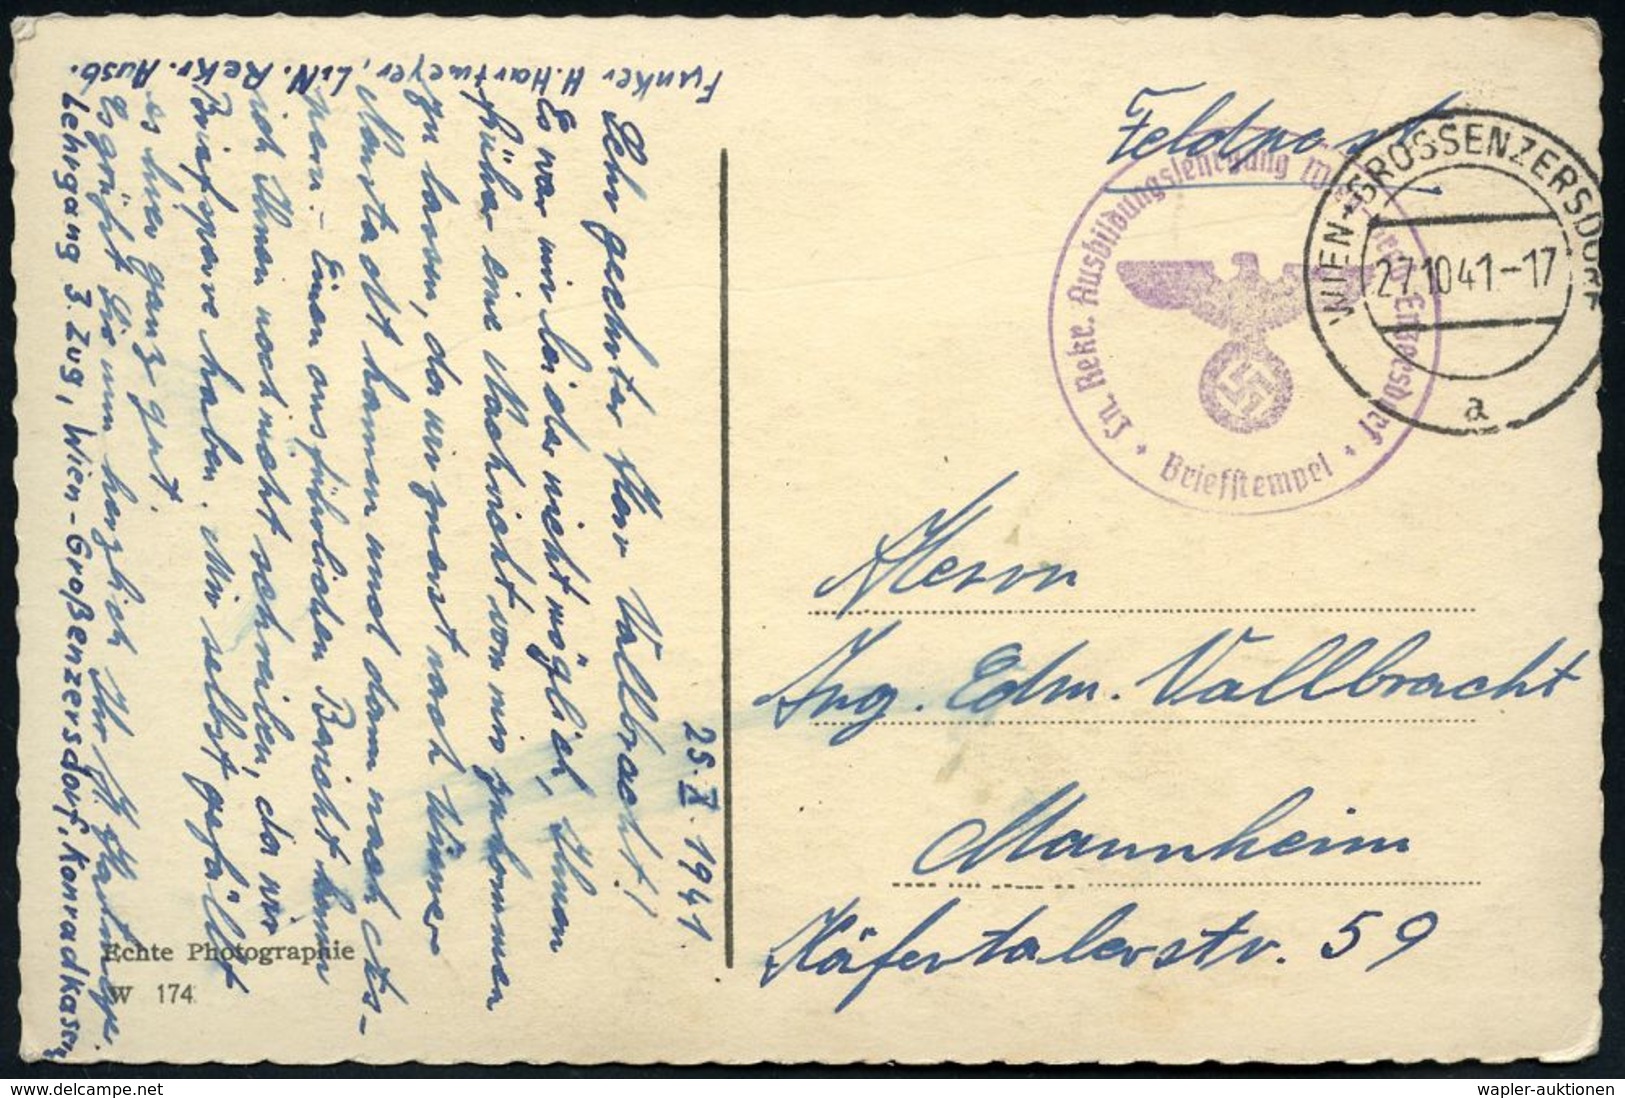 Funker H. Hartmeyer, L.N. Rekr. Ausb.
Lehrgang 3. Zug, Wien-Großenzersdorf, Konradkasern
25. X. 1941
Sehr geehrter Herr Vallbracht!
Es war mir leider nicht möglich, Ihnen
früher eine Nachricht von mir zukommen
zu lassen, da wir zuerst nach Wiener
Neustadt kamen und dann nach
Einen ausführlichen Bericht kann
ich Ihnen noch nicht schreiben, da wir
Briefsperre haben. Mir selbst gefällt
es hier ganz gut.
Es grüßt Sie nun herzlich Ihr H. Hartmeyer.
Echte Photographie
W 174
Feldpost
Ln. Rekr. Ausbildungslehrgang
Briefstempel
WIEN-GROSSENZERSDORF
27.10.41-17
a
Herrn
Ing. Edm. Vallbracht
Mannheim
Käfertalerstr. 59
the-collectors-hub.com
wapler-auktionen